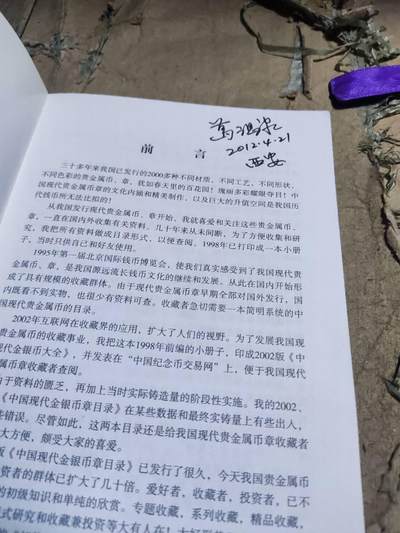 2012.4.21
西安
前 言
三十多年来我国已发行的2000多种不同材质、不同工艺、不同形状、
不同色彩的贵金属币、章,犹如春天里的百花园!瑰丽多彩耀眼夺目!中
国现代贵金属币章的文化内涵和精美制作,以及巨大的升值空间是我国历
代钱币所无法比拟的!
从我国发行现代贵金属币、章开始,我就喜爱和关注这些贵金属币、
章,一直在国内外收集有关资料。几十年来从未间断,为了方便收集和研
究,我把所有资料做成目录形式,以便查阅。1998年已打印成一本小册
子,当时只供自己和好友使用。
1995年第一届北京国际钱币博览会,使我们真实感受到了我国现代贵
金属币、章,是我国源远流长钱币文化的继续和发展。从此在国内开始形
成了具有规模的收藏群体。由于现代贵金属币章早期全部对国外发行,国
内既看不到实物,也很少有资料可查。收藏者急切需要一本简明系统的中
国现代贵金属币的目录。
2002年互联网在收藏界的应用,扩大了人们的视野。为了发展我国现
贵金属币的收藏事业,我把这本1998年前编的小册子,印成2002版《中
现代金银币大全》,并发表在“中国纪念币交易网”上,便于我国现代
属币章收藏者查阅。
于资料的匮乏,再加上当时实际铸造量的阶段性实施。我的2002、
《中国现代金银币章目录》在某些数据和最终实铸量上有些出入,
些错误。尽管如此,这两本目录还是给我国现代贵金属币章收藏者
大方便,颇受大家的喜爱。
版《中国现代金银币章目录》已发行了很久,今天我国贵金属币
资者的群体已扩大了几十倍。爱好者,收藏者,投资者,已不
的初级知识和单纯的欣赏。专题收藏,系列收藏,精品收藏,
式研究和收藏兼投资等大有人在!